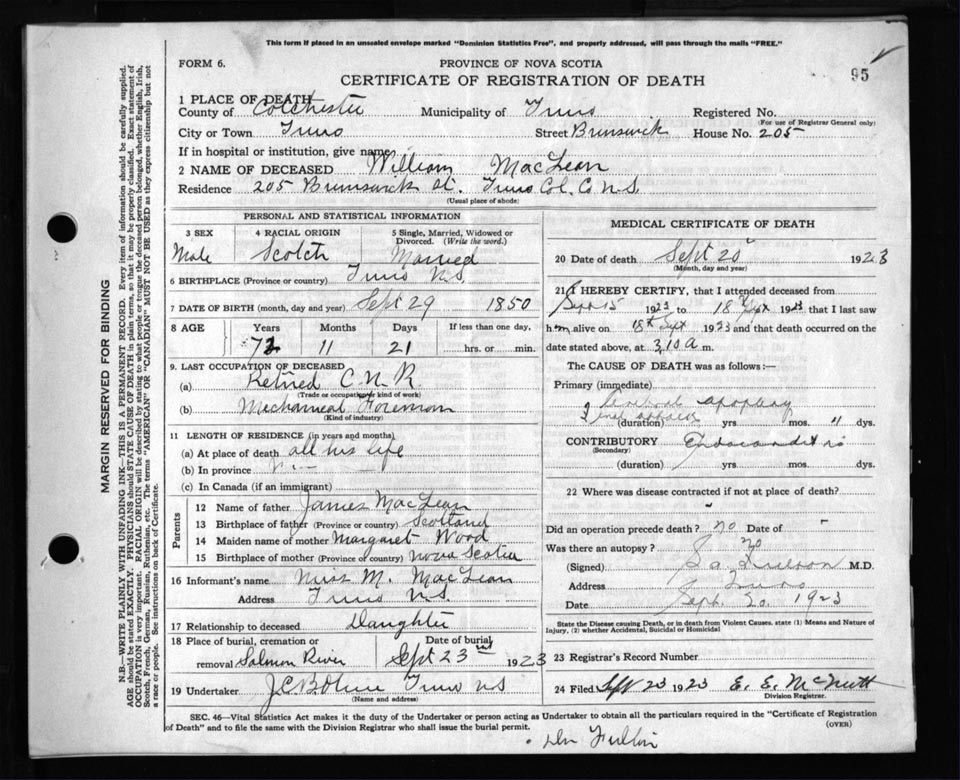 This form if placed in an unsealed envelope marked "Dominion Statistics Free", and properly addressed, will pass through the mails "FREE."
FORM 6.
PROVINCE OF NOVA SCOTIA
95
CERTIFICATE OF REGISTRATION OF DEATH
1 PLACE OF DEATH
County of Colchester Municipality of Truro Registered No.
(For use of Registrar General only)
City or Town Truro Street Brunswick House No. 205
If in hospital or institution, give name
2 NAME OF DECEASED William MacLean
Residence 205 Brunswick St. Truro Col. Co N.S.
(Usual place of abode)
PERSONAL AND STATISTICAL INFORMATION
3 SEX 4 RACIAL ORIGIN 5 Single, Married, Widowed or Divorced. (Write the word.)
Male Scotch Married
6 BIRTHPLACE (Province or country) Truro N.S.
7 DATE OF BIRTH (month, day and year) Sept 29 1850
8 AGE Years Months Days If less than one day,
72 11 21 hrs. or min.
9. LAST OCCUPATION OF DECEASED
(a) Retired C.N.R.
(Trade or occupation or kind of work)
(b) Mechanical Foreman
(Kind of industry)
11 LENGTH OF RESIDENCE (in years and months)
(a) At place of death all his life
(b) In province
(c) In Canada (if an immigrant)
Parents
12 Name of father James MacLean
13 Birthplace of father (Province or country) Scotland
14 Maiden name of mother Margaret Wood
15 Birthplace of mother (Province or country) Nova Scotia
16 Informant's name Miss M. MacLean
Address Truro N.S.
17 Relationship to deceased Daughter
18 Place of burial, cremation or removal Salmon River Date of burial Sept 23 1923
19 Undertaker Truro N S
(Name and address)
MEDICAL CERTIFICATE OF DEATH
20 Date of death Sept 20 1923
(Month, day and year)
21 I HEREBY CERTIFY, that I attended deceased from
Sept 15 1923 to 18 Sept 1923 that I last saw
him alive on 18th Sept 1923 and that death occurred on
date stated above, at 3.10 a m.
The CAUSE OF DEATH was as follows:—
Primary (immediate)
Cerebral apoplexy
(duration) yrs mos. dys.
CONTRIBUTORY Endocarditis
(Secondary)
(duration) yrs. mos. dys.
22 Where was disease contracted if not at place of death?
Did an operation precede death? no Date of
Was there an autopsy? no
(Signed) M.D.
Address Truro
Date Sept. 20. 1923
State the Disease causing Death, or in death from Violent Causes, state (1) Means and Nature of Injury, (2) whether Accidental, Suicidal or Homicidal
23 Registrar's Record Number
24 Filed Sept 23 1923 E. E. McNutt
Division Registrar.
SEC. 46—Vital Statistics Act makes it the duty of the Undertaker or person acting as Undertaker to obtain all the particulars required in the "Certificate of Registration
of Death" and to file the same with the Division Registrar who shall issue the burial permit.
(OVER)
MARGIN RESERVED FOR BINDING
N.B.—WRITE PLAINLY WITH UNFADING INK—THIS IS A PERMANENT RECORD. Every item of information should be carefully supplied.
AGE should be stated EXACTLY. PHYSICIANS should STATE CAUSE OF DEATH in plain terms, so that it may be properly classified. Exact statement of
OCCUPATION is very important. RACIAL ORIGIN will be described by stating to what people or tongue the deceased person belonged, whether English, Irish,
Scotch, French, German, Russian, Ruthenian, etc. The terms "AMERICAN" OR "CANADIAN" MUST NOT BE USED as they express citizenship but not
a race or people. See instructions on back of Certificate.